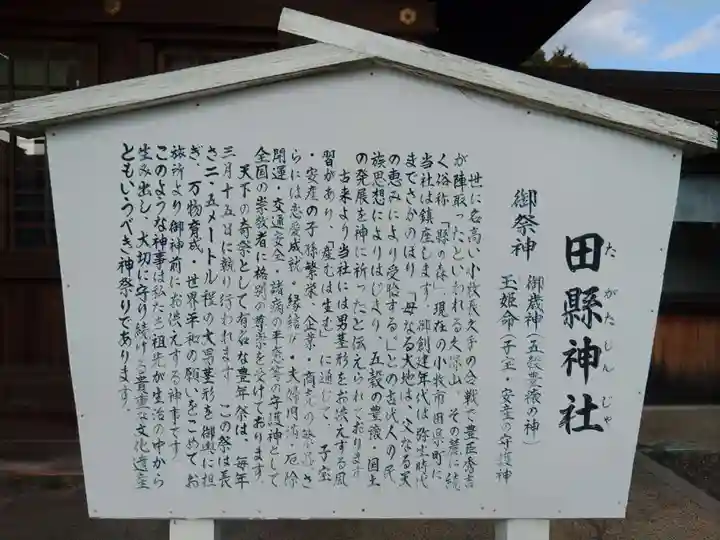 田縣神社
たがたじんじゃ
御祭神
御歳神(五穀豊穣の神)
玉姫命(子宝・安産の守護神)
世に名高い小牧長久手の合戦で豊臣秀吉
が陣取ったといわれる久保山、その麓に続
く俗称「縣の森」現在の小牧市田県町に
当社は鎮座します。御創建年代は弥生時代
までさかのぼり「母なる大地は、父なる天
の恵みにより受胎する」との古代人の民
族思想によりはじまり、五穀の豊穣・国土
の発展を神に祈ったと伝えられております。
古来より当社には男茎形をお供えする風
習があり、「産む生む」に通じて、子宝
・安産の子孫繁栄・企業・商売の繁盛、さ
らには恋愛成就・縁結び・夫婦円満・厄除
開運・交通安全・諸病の平癒等の守護神として
全国の崇敬者に格別の尊崇を受けております。
天下の奇祭として有名な豊年祭は、毎年
三月十五日に執り行われます。この祭は長
さ二・五メートル程の大男茎形を御輿に担
ぎ、万物育成・世界平和の願いをこめてお
旅所より御神前にお供えする神事です。
このような神事は私たち祖先が生活の中から
生み出し、大切に守り続ける貴重な文化遺産
ともいうべき神祭りであります。